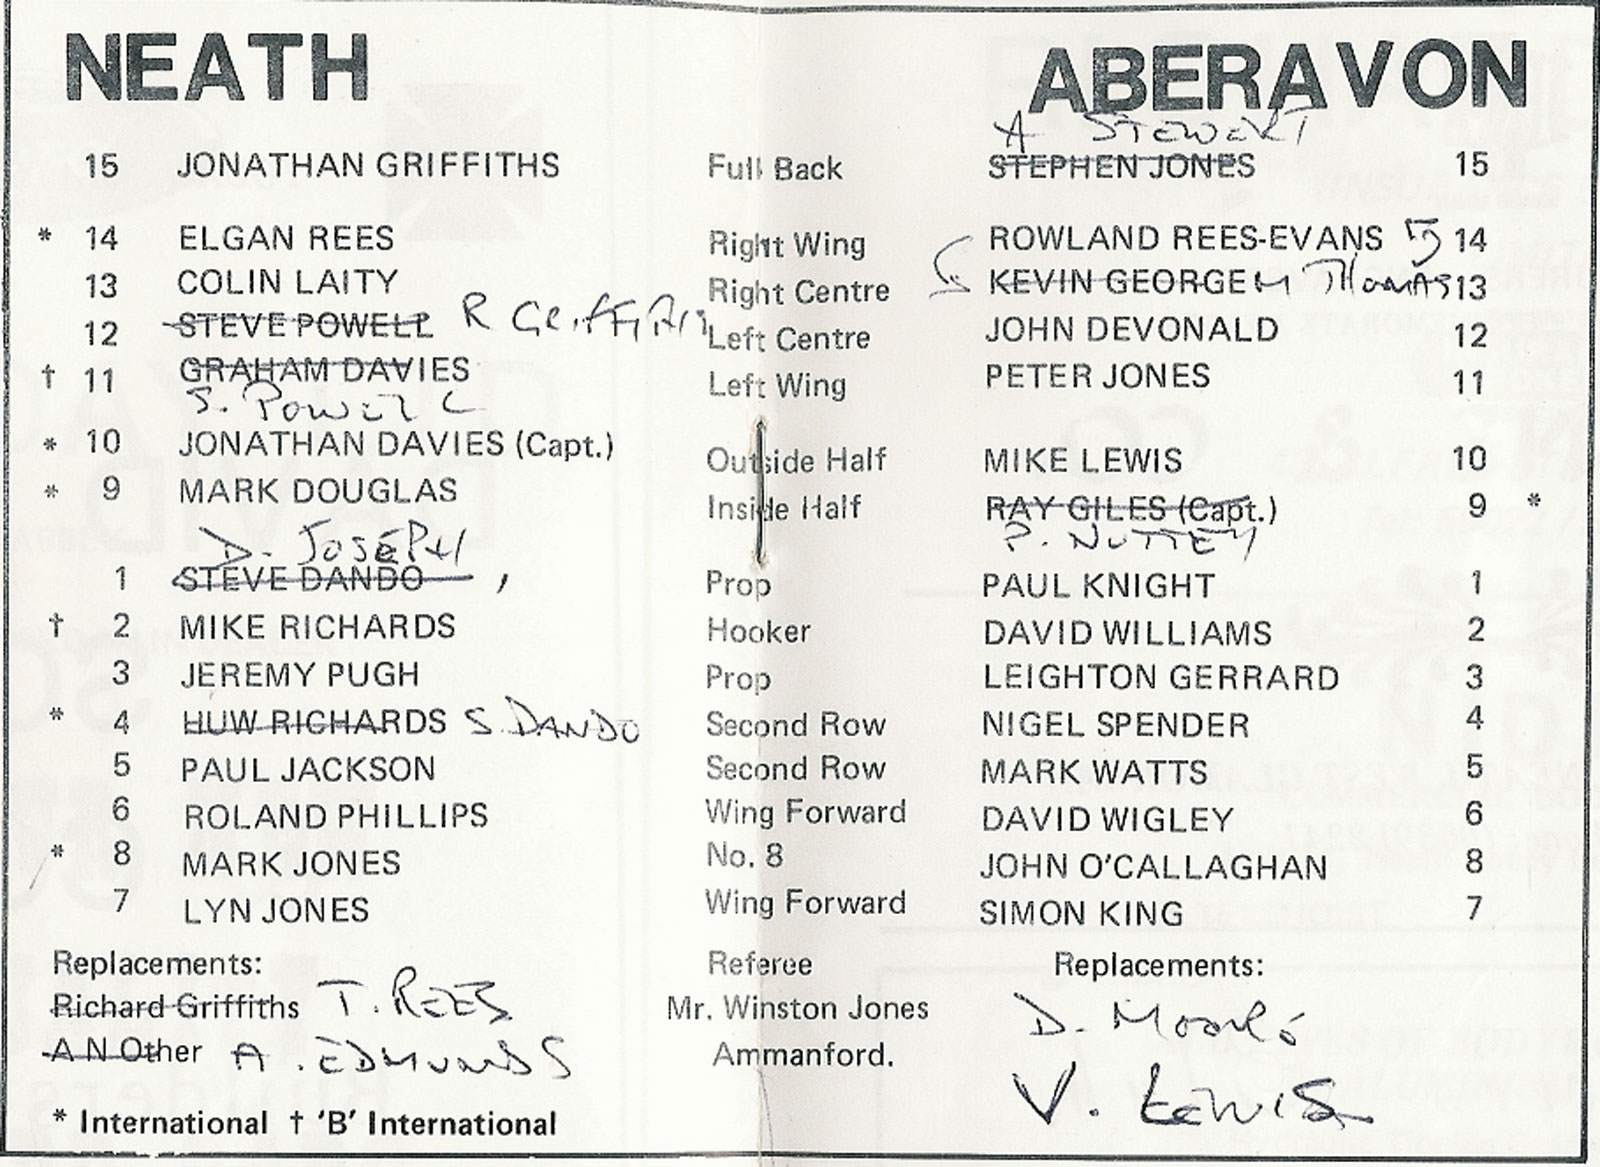 NEATH ABERAVON
A STEWERT
15 JONATHAN GRIFFITHS Full Back STEPHEN JONES 15
* 14 ELGAN REES Right Wing ROWLAND REES-EVANS 14
13 COLIN LAITY Right Centre KEVIN GEORGE M THOMAS 13
12 STEVE POWELL R Griffiths Left Centre JOHN DEVONALD 12
† 11 GRAHAM DAVIES Left Wing PETER JONES 11
S. POWELL
* 10 JONATHAN DAVIES (Capt.) Outside Half MIKE LEWIS 10
* 9 MARK DOUGLAS Inside Half RAY GILES (Capt.) 9 *
D. JOSEPH P. NUTTEY
1 STEVE DANDO Prop PAUL KNIGHT 1
† 2 MIKE RICHARDS Hooker DAVID WILLIAMS 2
3 JEREMY PUGH Prop LEIGHTON GERRARD 3
* 4 HUW RICHARDS S. DANDO Second Row NIGEL SPENDER 4
5 PAUL JACKSON Second Row MARK WATTS 5
6 ROLAND PHILLIPS Wing Forward DAVID WIGLEY 6
* 8 MARK JONES No. 8 JOHN O'CALLAGHAN 8
7 LYN JONES Wing Forward SIMON KING 7
Replacements: Referee Replacements:
Richard Griffiths T. REES Mr. Winston Jones D.
A N Other A. EDMUNDS Ammanford. V. Lewis
* International † 'B' International